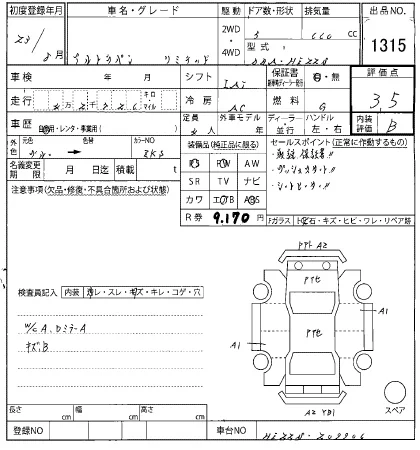 初度登録年月 車名・グレード 駆動 ドア数・形状 排気量 出品NO.
23/8月 アルトラパン リミテッド 2WD・4WD 5 660 cc 1315
型式 DBA-HE22S
車検 年 月 シフト IAT 保証書 有・無 評価点
走行 キロ マイル 冷房 AC 燃料 G 3.5
車歴 自家用・レンタ・事業用( ) 定員 4人 外車モデル 年 ディーラー・並行 ハンドル 左・右 内装評価 B
外色 元色 色替 カラーNO ZKS
名義変更期限 月 日迄 積載 t
装備品(純正品に限る)
PS PW AW
SR TV ナビ
カワ エアB ABS
R券 9,170円
セールスポイント(正常に作動するもの)
・取説、保証書!!
・プッシュスタート!!
・シートヒーター!!
Fガラス トビ石・キズ・ヒビ・ワレ・リペア跡
注意事項(欠品・修復・不具合箇所および状態)
検査員記入 内装 汚レ・スレ・キズ・キレ・コゲ・穴
キズB
A2
A1
A1
A2 YB1
スペア
長さ cm 幅 cm 高さ cm
登録NO 車台NO